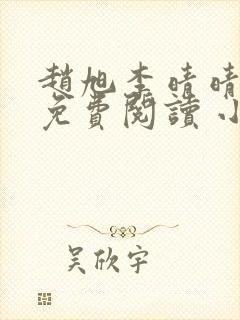 趙旭李晴晴
免費閱讀小
吳欣宇